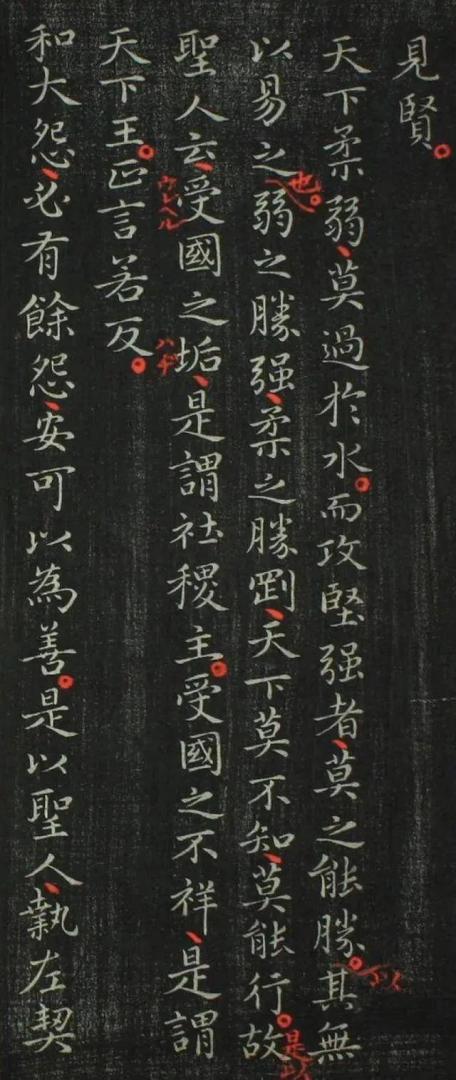 見賢。
天下柔弱、莫過於水。而攻堅强者、莫之能勝。其無
以易之也。弱之勝强、柔之勝剛、天下莫不知、莫能行。故
是以
聖人云、受國之垢、是謂社稷主。受國之不祥、是謂
ハヂ
天下王。正言若反。
和大怨、必有餘怨、安可以為善。是以聖人、執左契